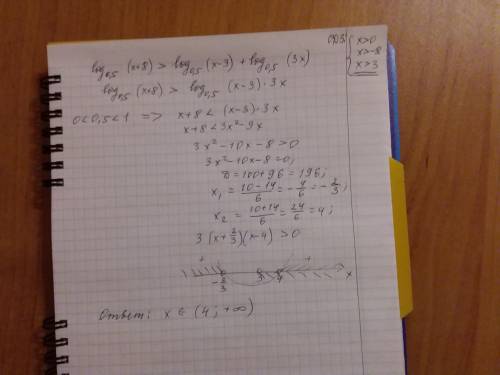 ОДЗ: { x>0
x>-8
x>3
log₀,₅ (x+8) > log₀,₅ (x-3) + log₀,₅ (3x)
log₀,₅ (x+8) > log₀,₅ (x-3)·3x
0<0,5<1 => x+8 < (x-3)·3x
x+8 < 3x²-9x
3x²-10x-8>0
3x²-10x-8=0;
D=100+96=196;
x₁ = (10-14)/6 = -4/6 = -2/3;
x₂ = (10+14)/6 = 24/6 = 4;
3(x+2/3)(x-4)>0
+ +
-2/3 3 4 x
Ответ: x ∈ (4; +∞)